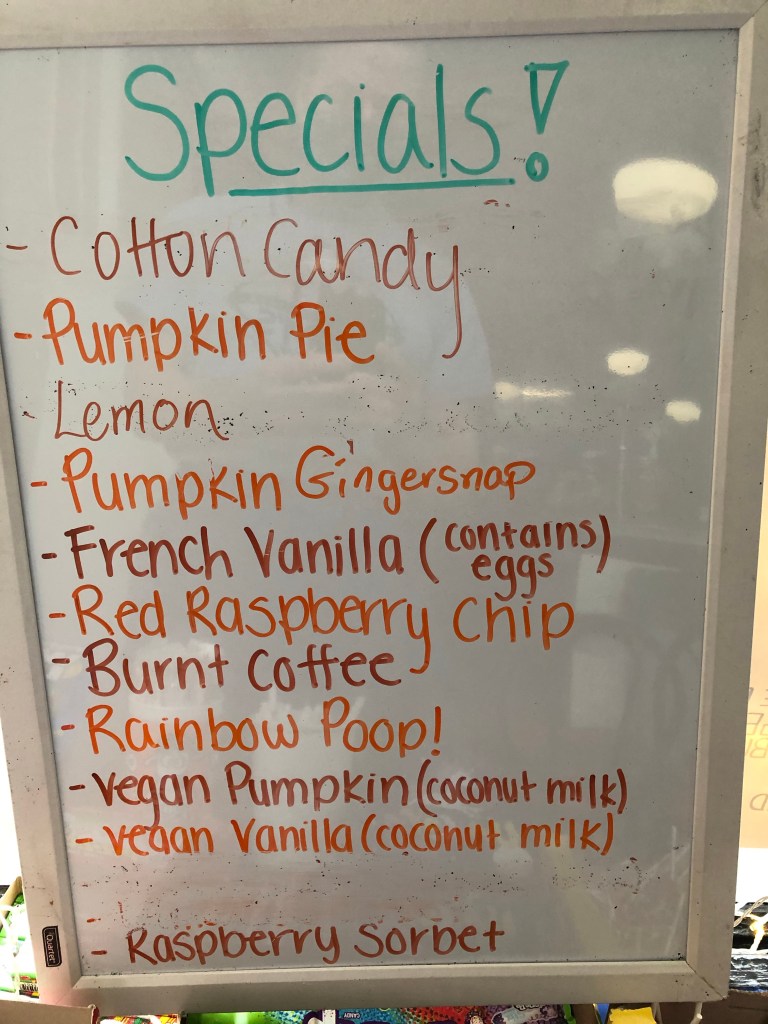 Specials!
- Cotton Candy
- Pumpkin Pie
- Lemon
- Pumpkin Gingersnap
- French Vanilla (contains eggs)
- Red Raspberry Chip
- Burnt Coffee
- Rainbow Poop!
- vegan Pumpkin (coconut milk)
- vegan Vanilla (coconut milk)
-
- Raspberry Sorbet
Quartet
CANDY